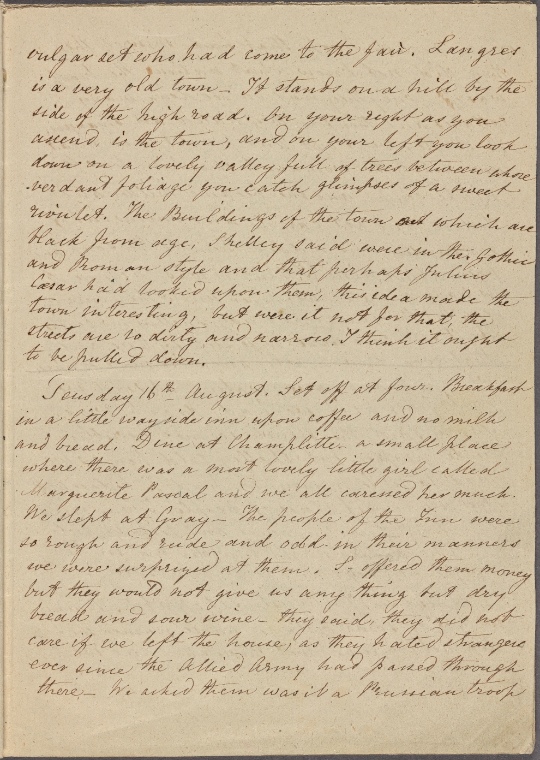 vulgar set who had come to the fair. Langres
is a very old town - It stands on a hill by the
side of the high road. On your right as you
ascend, is the town, and on your left you look
down on a lovely valley full of trees between whose
verdant foliage you catch glimpses of a sweet
rivulet. The Buildings of the town which are
black from age, Shelley said were in the Gothic
and Roman style and that perhaps Julius
Cæsar had looked upon them, this idea made the
town interesting, but were it not for that, the
streets are so dirty and narrow. I think it ought
to be pulled down.
Teusday 16th August. Set off at four. Breakfast
in a little wayside inn upon coffee and no milk
and bread. Dine at Champlitte a small place
where there was a most lovely little girl called
Marguerite Pascal and we all caressed her much.
We slept at Gray - The people of the Inn were
so rough and rude and odd in their manners
we were surprized at them. S- offered them money
but they would not give us any thing but dry
bread and sour wine - they said, they did not
care if we left the house, as they hated strangers
ever since the Allied Army had passed through
there - We asked them was it a Prussian troop